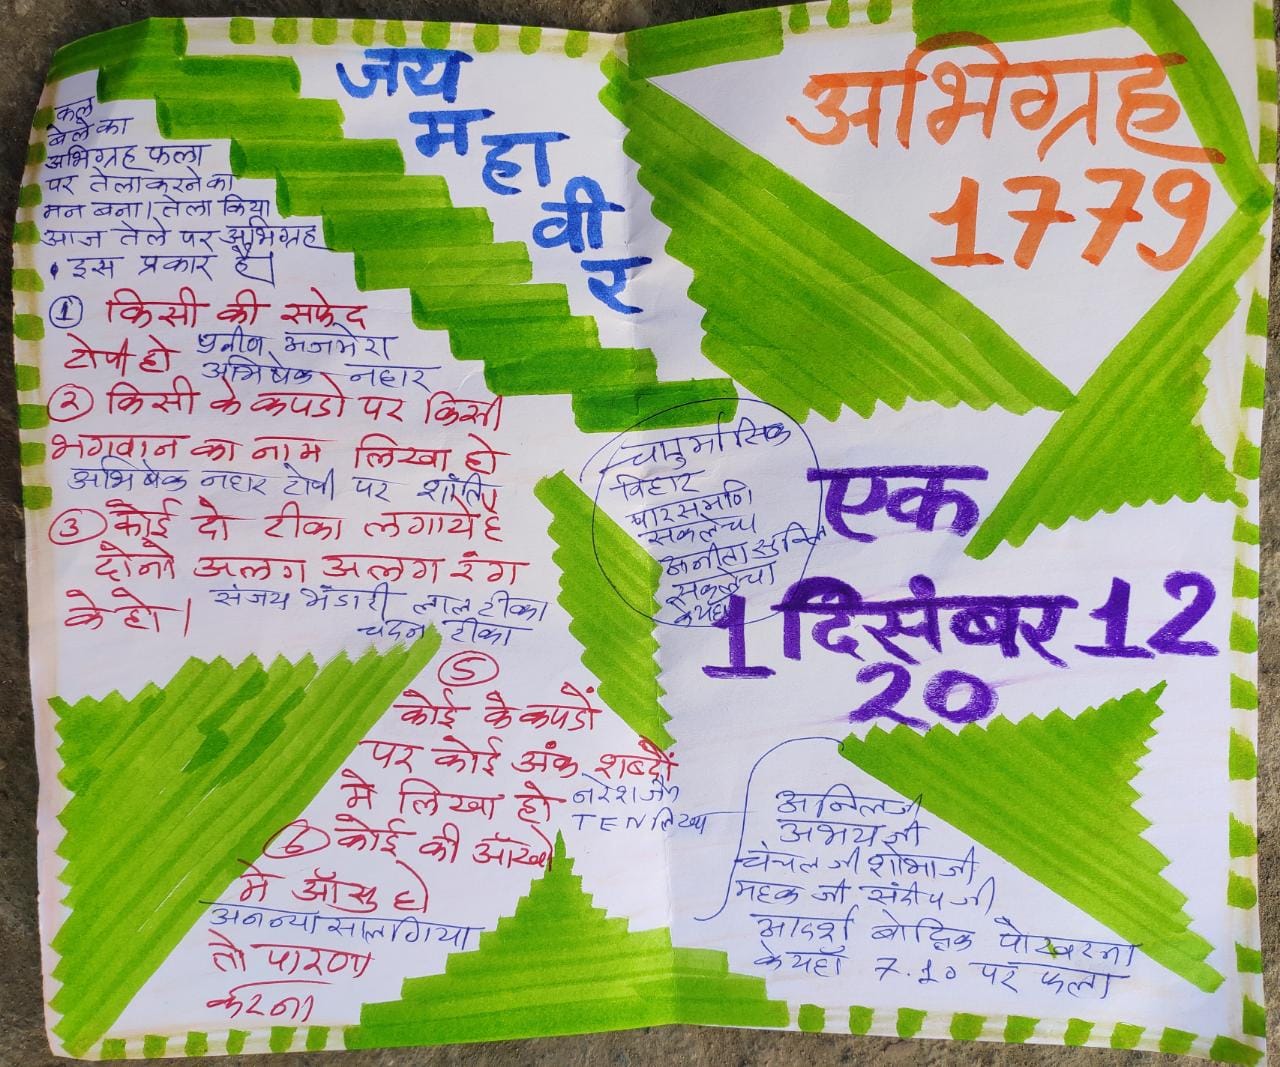 जय
महावीर
कल
बेले का
अभिग्रह फला
पर तेला करने का
मन बना। तेला किया
आज तेले पर अभिग्रह
इस प्रकार है।
① किसी की सफेद
टोपी हो
अजमेरा
अभिषेक नहार
② किसी के कपडो पर किसी
भगवान का नाम लिखा हो
अभिषेक नहार टोपी पर
③ कोई दो टीका लगाये है
दोनो अलग अलग रंग
के हो।
संजय भंडारी लाल टीका
चंदन टीका
⑤
कोई के कपडों
पर कोई अंक शब्दों
मे लिखा हो
नरेश जैन
TEN लिखा
⑥ कोई की आँखो
मे आँसु हो
अनन्या सालगिया
तो पारणा
करना
अभिग्रह
1779
चातुर्मासिक
विहार
पारसमणि
सकलेचा
अनीता
सकलेचा
के यहाँ
एक
1 दिसंबर 12
20
अनिलजी
अभय जी
चंचल जी शोभाजी
महक जी संदीप जी
आदर्श पोखरना
के यहाँ 7.10 पर फला